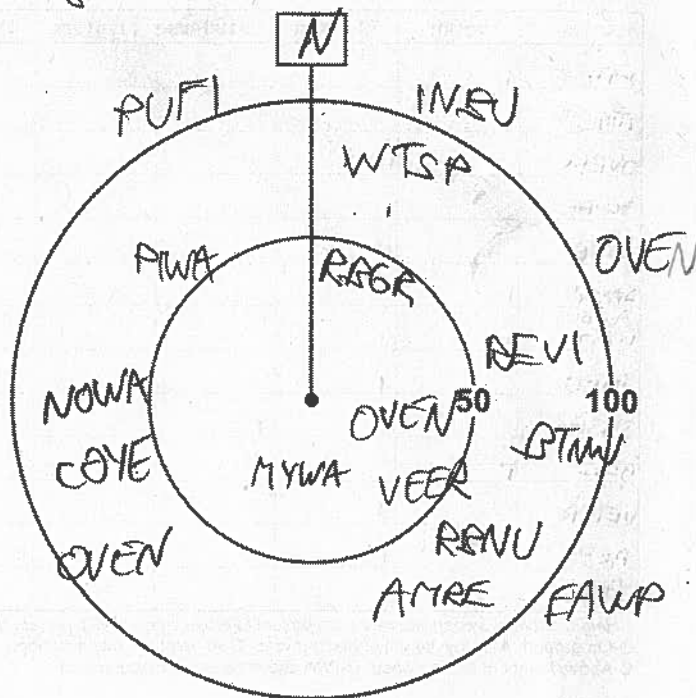 N
PUFI
INBU
WTSP
OVEN
PIWA
RBGR
REVI
NOWA
OVEN 50
100
BTNW
COYE
MYWA
VEER
OVEN
RBNU
AMRE
EAWP